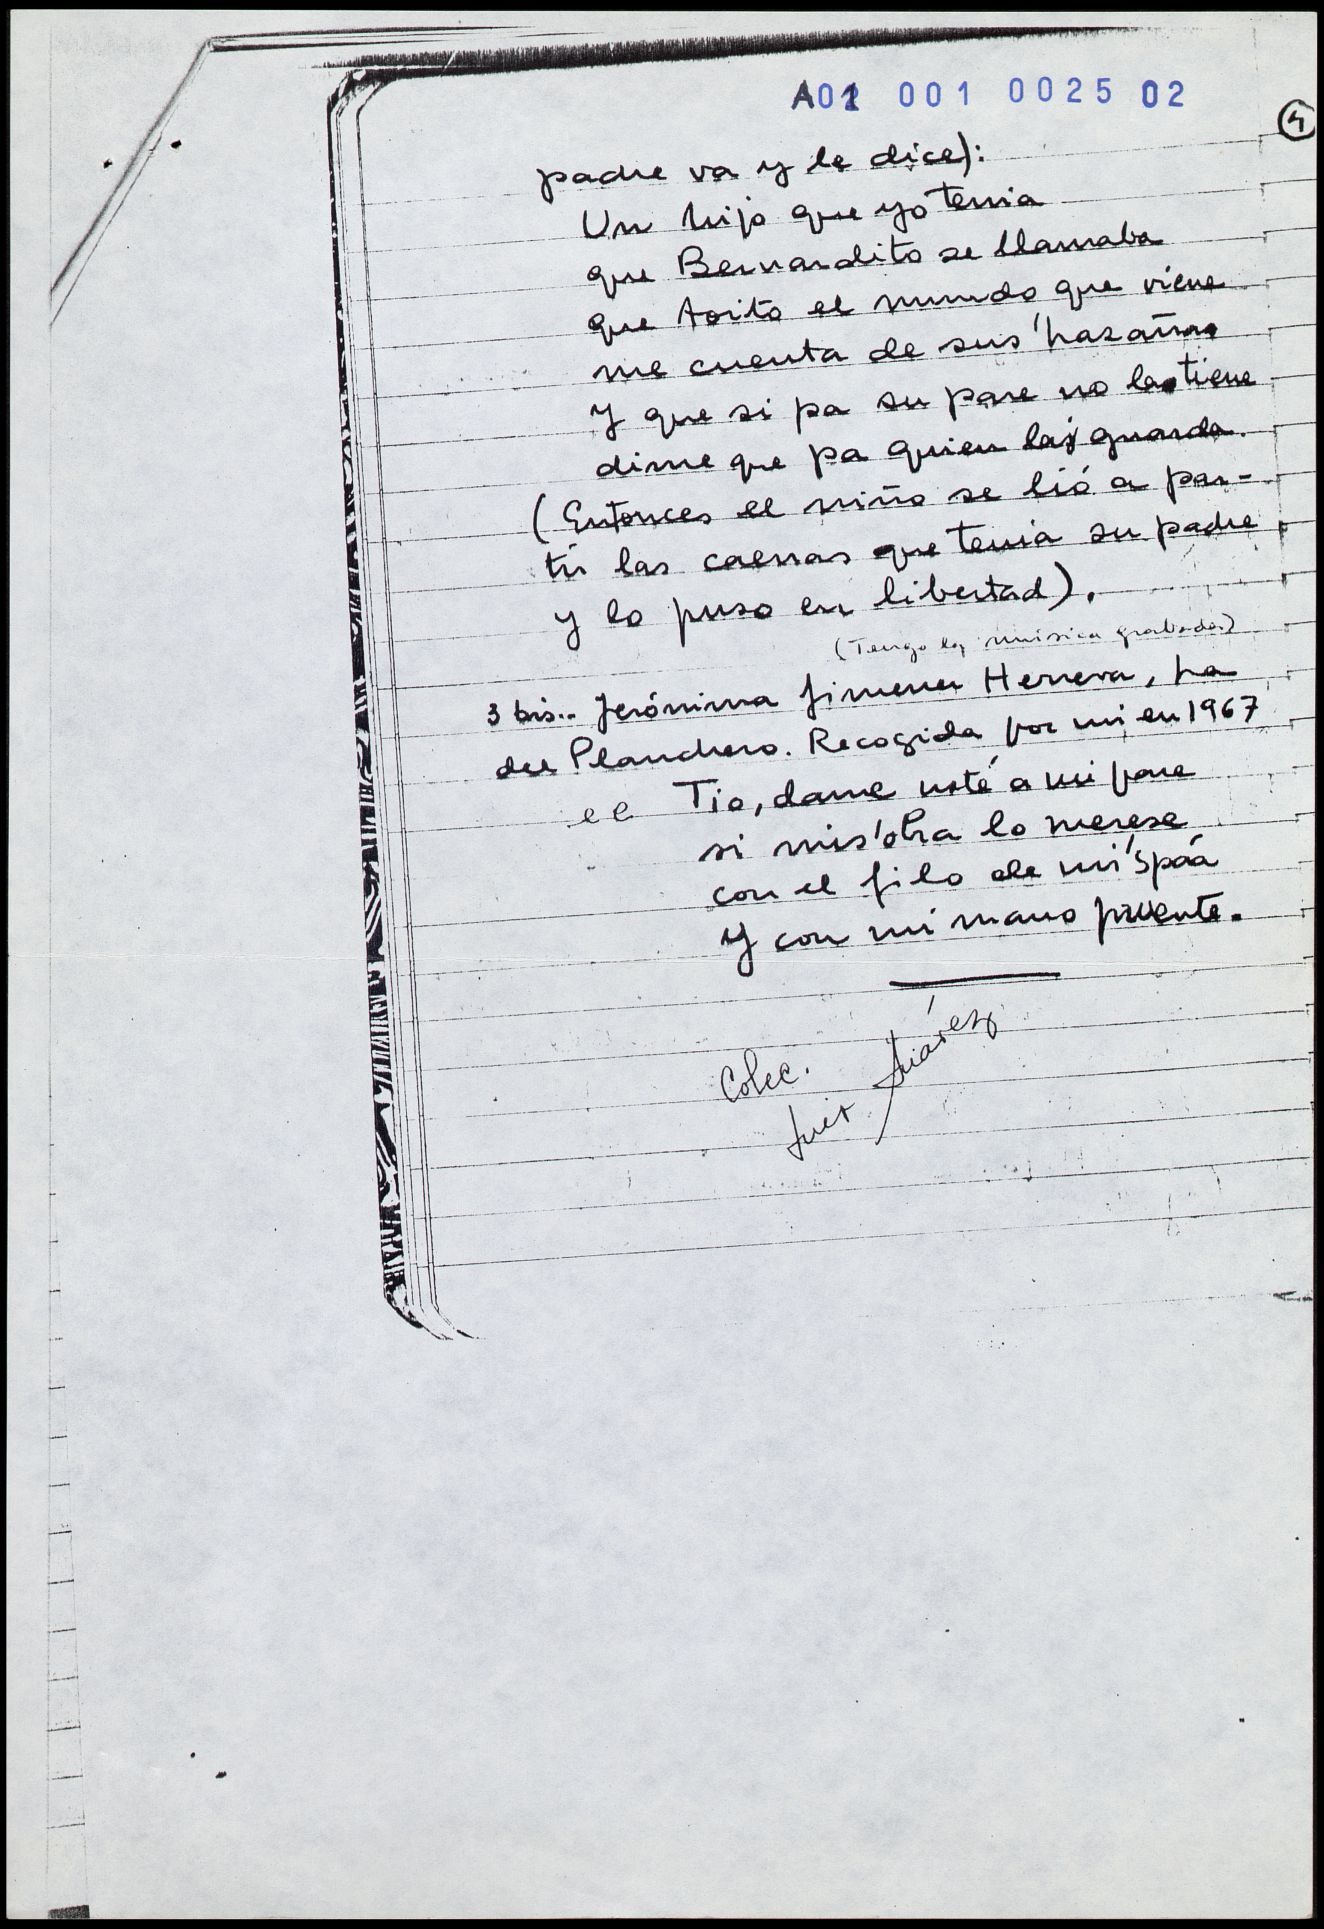 A01 001 0025 02
4
padre va y le dice):
Un hijo que yo tenia
que Bernardito se llamaba
que toito el mundo que viene
me cuenta de sus'hazañas
Y que si pa su pare no las tiene
dime que pa quien las guarda.
(Entonces el niño se lió a par-
tir las caenas que tenia su padre
y lo puso en libertad).
(Tengo la música grabada)
3 bis.. Jerónima Jimenez Herrera, ha
del Planchero. Recogida por mi en 1967
el Tio, dame usté a mi pare
si mis'obra lo merese
con el filo de mi'spáa
Y con mi mano
Colec.
Luis Suárez